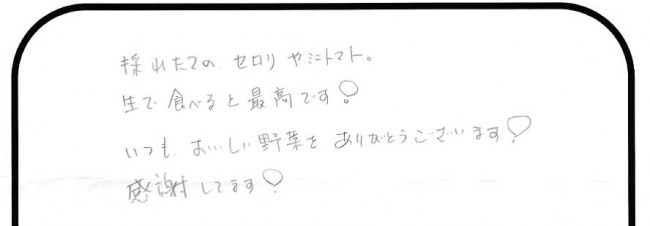 採れたての、セロリやミニトマト。
生で食べると最高です!
いつも、おいしい野菜をありがとうございます!
感謝してます!